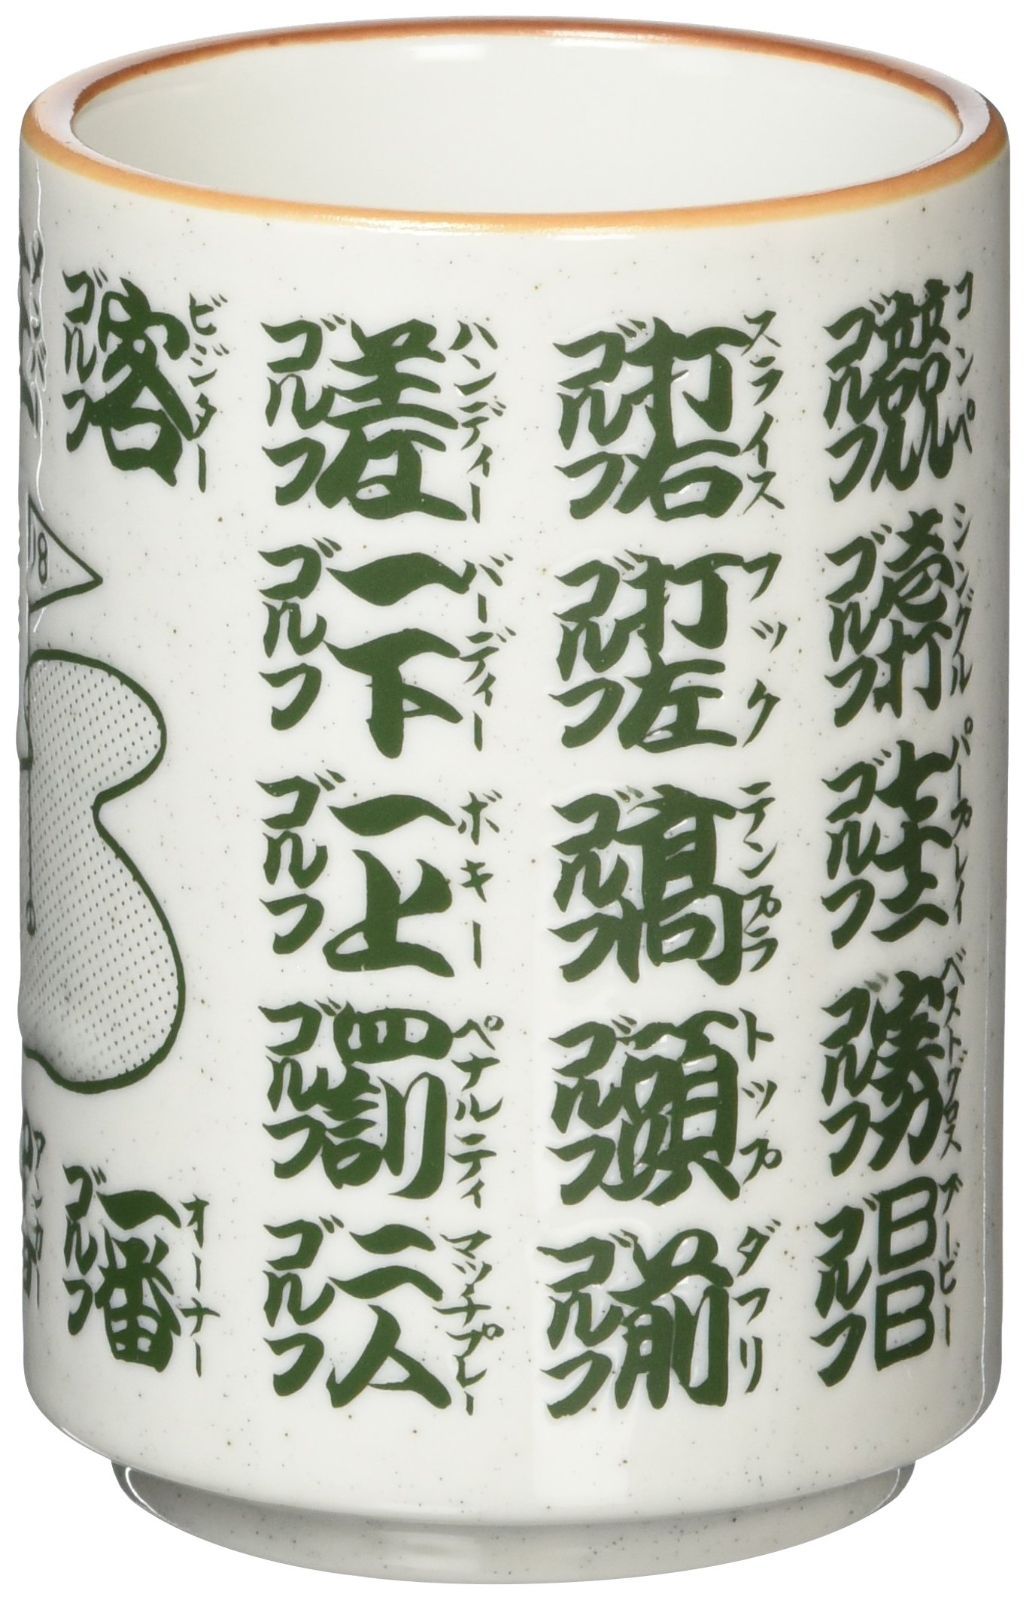 コンペ
ゴルフ競
シングル
ゴルフ壱打
パープレイ
ゴルフ
ベストグロス
ゴルフ勝
ブービー
ゴルフBB
スライス
ゴルフ打右
フック
ゴルフ打左
テンプラ
ゴルフ高
トップ
ゴルフ頭
ダフリ
ゴルフ前
ハンディー
ゴルフ差
バーディー
ゴルフ一下
ボキー
ゴルフ一上
ペナルティ
ゴルフ罰
マッチプレー
ゴルフ二人
ビジター
ゴルフ客
オーナー
ゴルフ一番